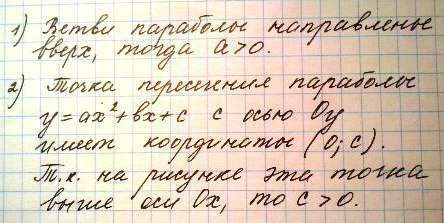 1) Ветви параболы направлены
вверх, тогда a>0.
2) Точка пересечения параболы
y=ax²+bx+c с осью Oy
имеет координаты (0;c).
Т.к. на рисунке эта точка
выше оси Ox, то c>0.